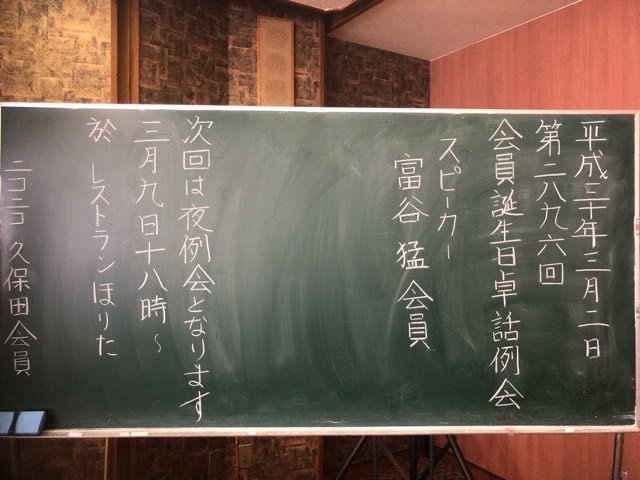 平成三十年三月二日
第二八九六回
会員誕生日卓話例会
スピーカー
富谷 猛 会員
次回は夜例会となります
三月九日十八時～
於 レストランほりた
ニコニコ 久保田会員